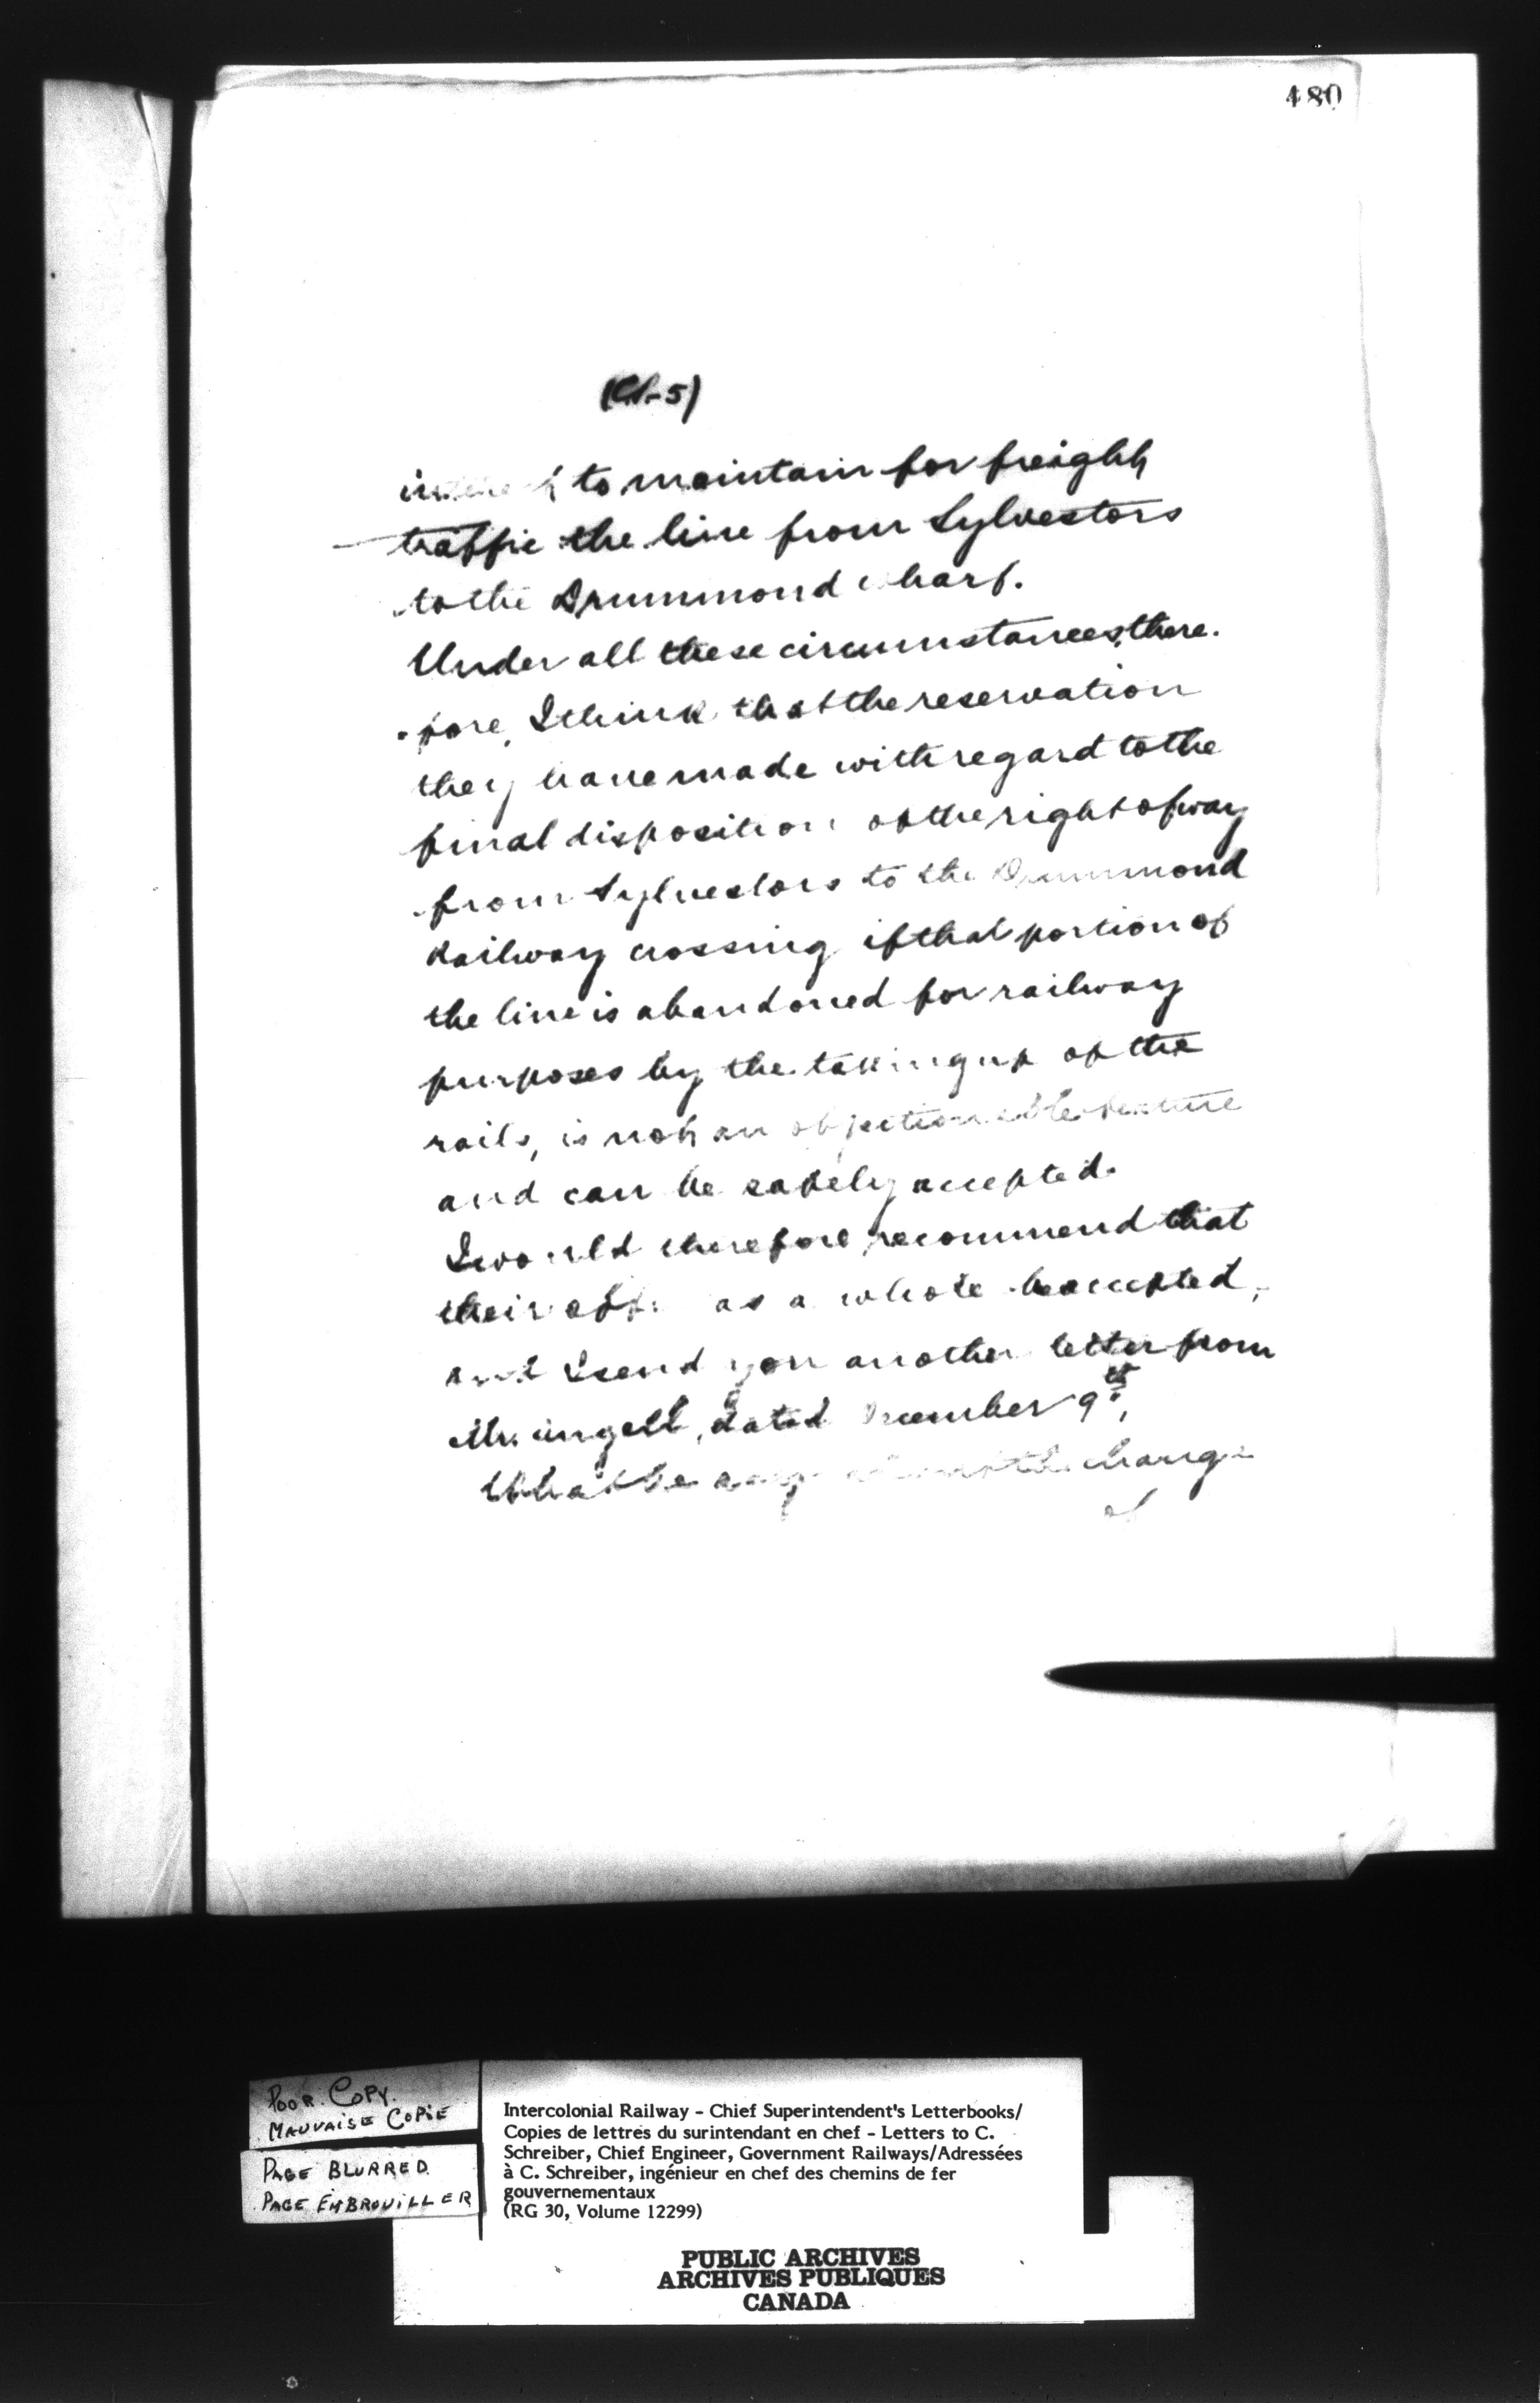 480
to maintain for freight
traffic the line from Sylvestors
to the Drummond wharf.
Under all these circumstances, there-
fore, I think that the reservation
they have made with regard to the
final disposition of the right of way
from Sylvestors to the Drummond
Railway crossing if that portion of
the line is abandoned for railway
purposes by the taking up of the
rails, is not an objectionable feature
and can be safely accepted.
I would therefore recommend that
their offer as a whole be accepted,
and I send you another letter from
Mr. dated December 9th,
change
of
POOR COPY.
MAUVAISE COPIE
PAGE BLURRED
PAGE EMBROUILLER
Intercolonial Railway - Chief Superintendent's Letterbooks/
Copies de lettres du surintendant en chef - Letters to C.
Schreiber, Chief Engineer, Government Railways/Adressées
à C. Schreiber, ingénieur en chef des chemins de fer
gouvernementaux
(RG 30, Volume 12299)
PUBLIC ARCHIVES
ARCHIVES PUBLIQUES
CANADA